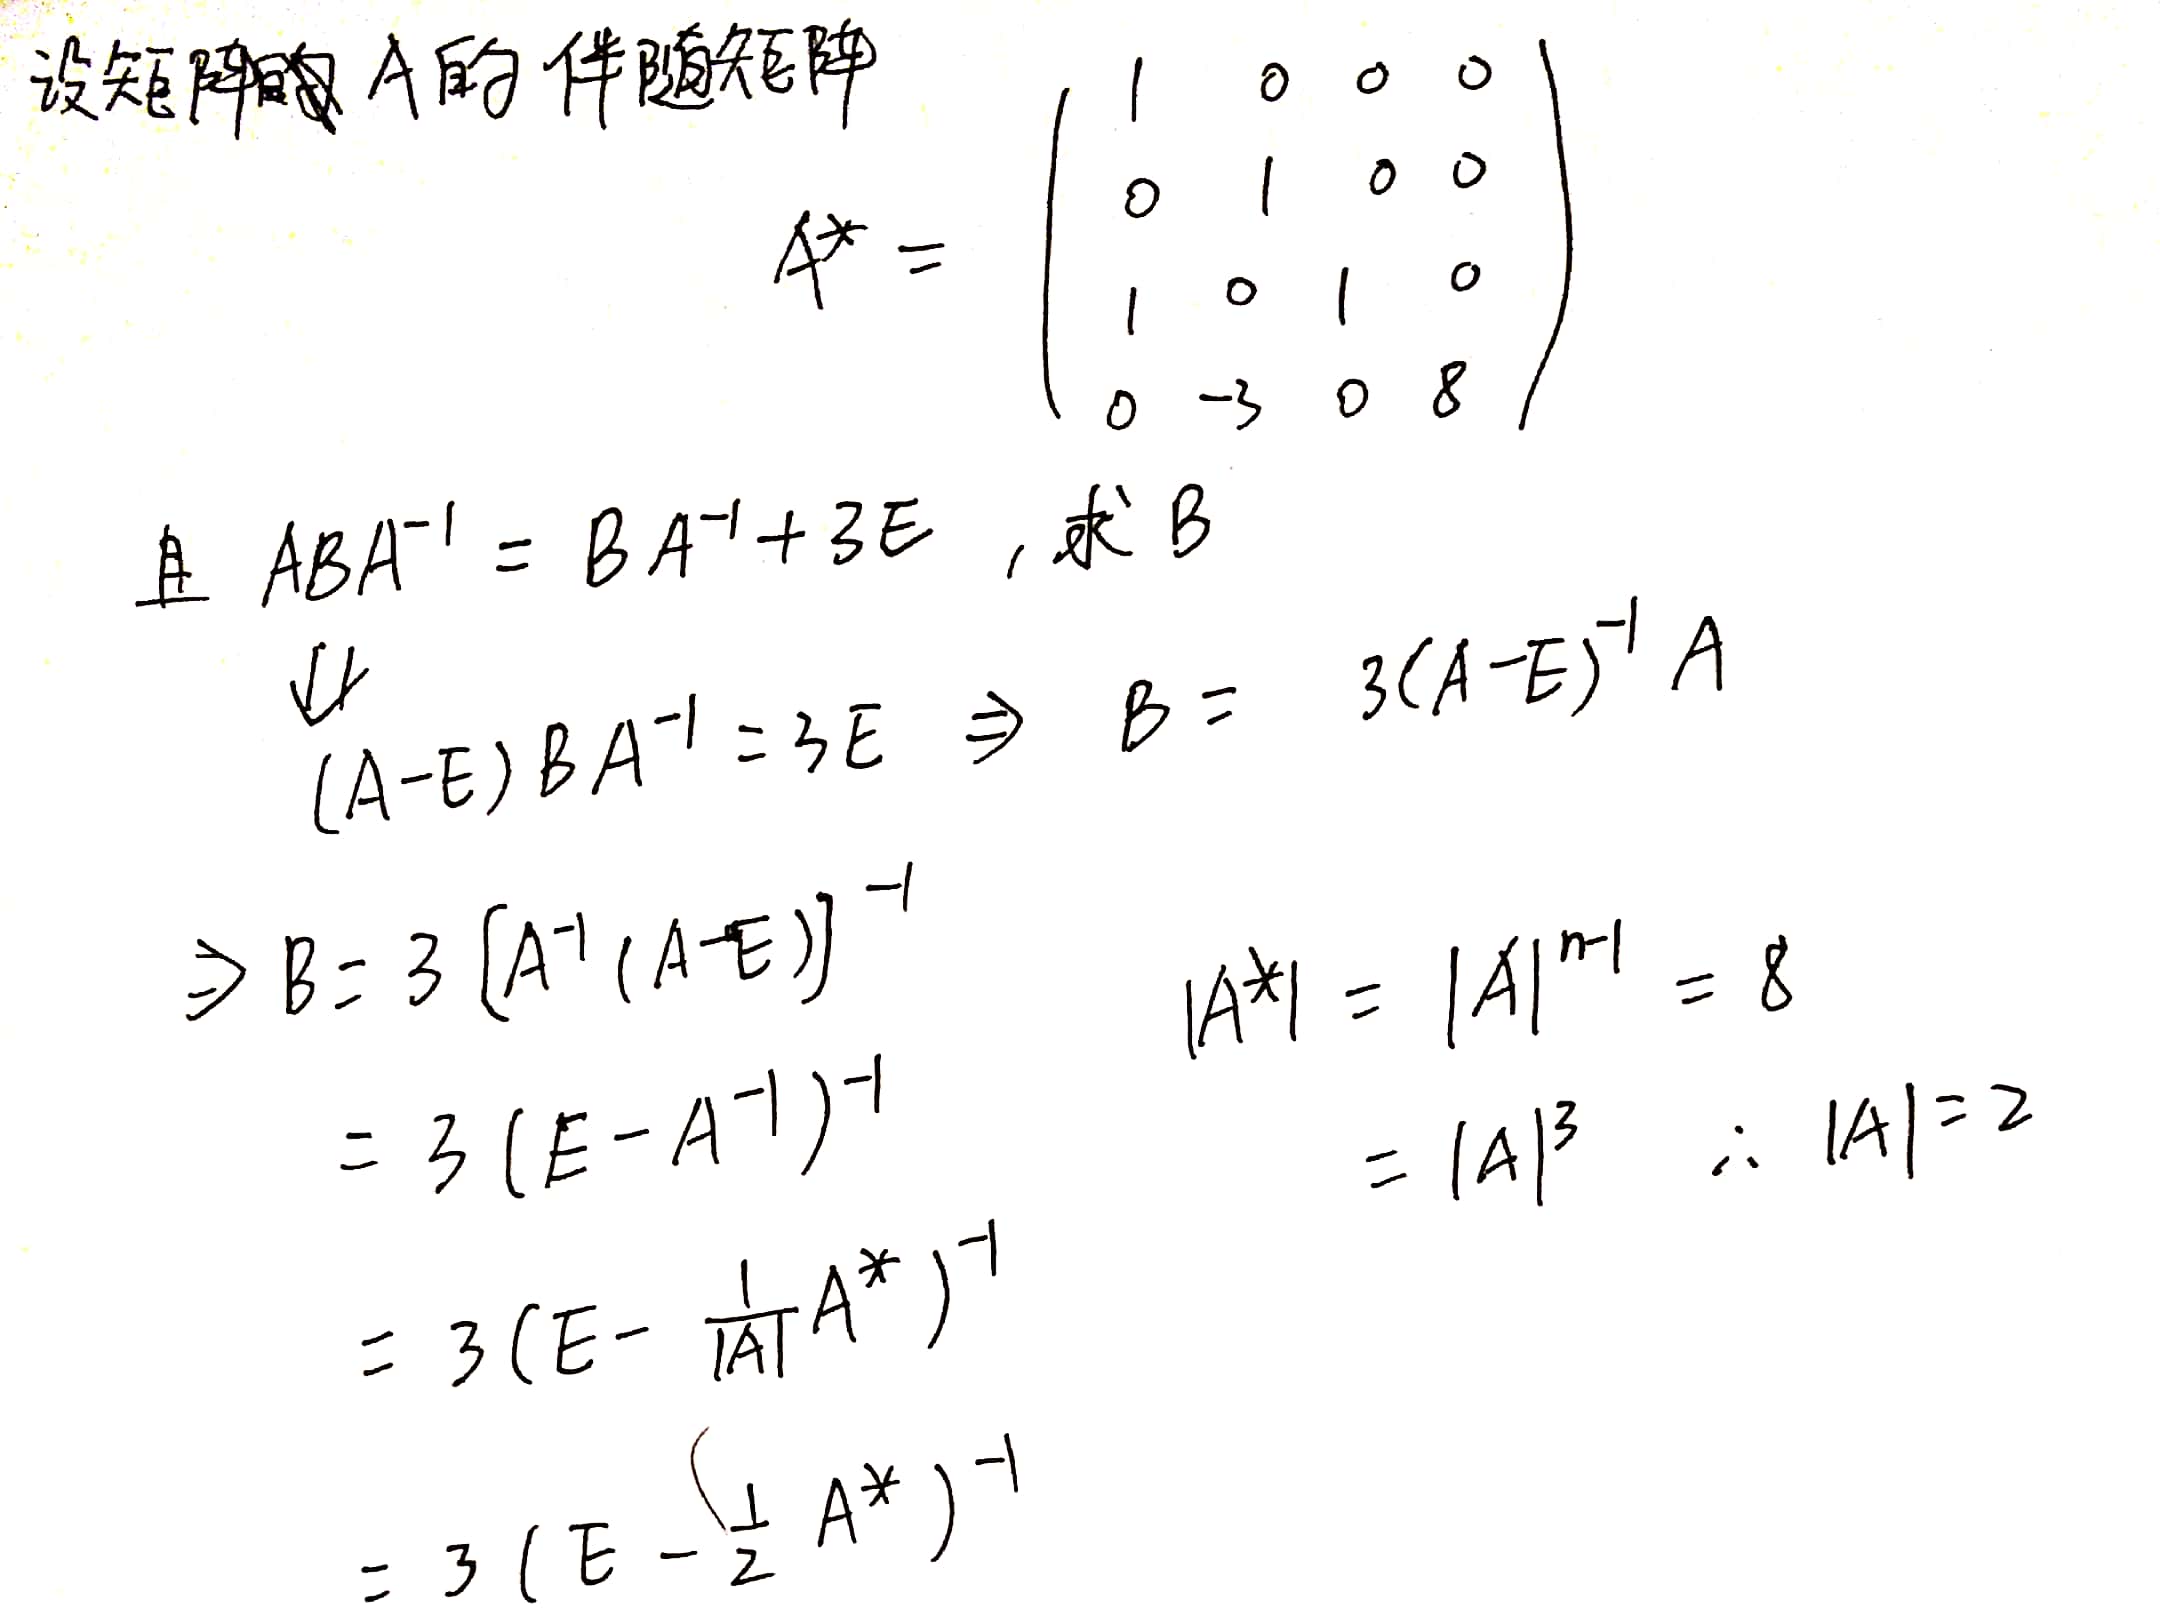 设矩阵 A的伴随矩阵
A* = ( 1 0 0 0
0 1 0 0
1 0 1 0
0 -3 0 8 )
且 ABA⁻¹ = BA⁻¹+3E , 求B
⇓
(A-E)BA⁻¹=3E ⇒ B= 3(A-E)⁻¹A
⇒ B= 3[A⁻¹(A-E)]⁻¹
|A*| = |A|ⁿ⁻¹ = 8
= 3(E-A⁻¹)⁻¹
= |A|³ ∴ |A|=2
= 3(E- 1/|A| A*)⁻¹
= 3(E-(1/2 A*)⁻¹